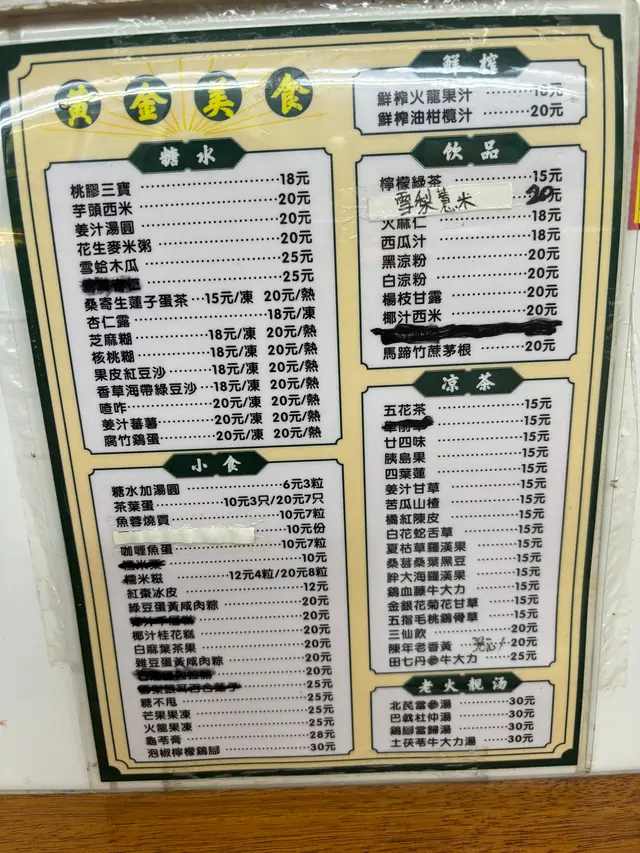 黃金美食
糖水
桃膠三寶 18元
芋頭西米 20元
姜汁湯圓 20元
花生麥米粥 20元
雪蛤木瓜 25元
25元
桑寄生蓮子蛋茶 15元/凍 20元/熱
杏仁露 18元/凍
芝麻糊 18元/凍 20元/熱
核桃糊 18元/凍 20元/熱
果皮紅豆沙 18元/凍 20元/熱
香草海帶綠豆沙 18元/凍 20元/熱
喳咋 20元/凍 20元/熱
姜汁蕃薯 20元/凍 20元/熱
腐竹鷄蛋 20元/凍 20元/熱
小食
糖水加湯圓 6元3粒
茶葉蛋 10元3只/20元7只
魚蓉燒賣 10元7粒
10元份
咖喱魚蛋 10元7粒
10元
糯米糍 12元4粒/20元8粒
紅棗冰皮 12元
綠豆蛋黃咸肉粽 20元
20元
椰汁桂花糕 20元
白麻葉茶果 20元
雜豆蛋黃咸肉粽 20元
20元
25元
糖不甩 25元
芒果果凍 25元
火龍果凍 25元
龜苓膏 28元
泡椒檸檬鷄腳 30元
鮮榨
鮮榨火龍果汁
鮮榨油柑欖汁 20元
飲品
檸檬綠茶 15元
雪梨薏米 20元
火麻仁 18元
西瓜汁 18元
黑涼粉 20元
白涼粉 20元
楊枝甘露 20元
椰汁西米 20元
馬蹄竹蔗茅根 20元
涼茶
五花茶 15元
15元
廿四味 15元
胰島果 15元
四葉蓮 15元
姜汁甘草 15元
苦瓜山楂 15元
橘紅陳皮 15元
白花蛇舌草 15元
夏枯草羅漢果 15元
桑葚桑葉黑豆 15元
胖大海羅漢果 15元
鷄血藤牛大力 15元
金銀花菊花甘草 15元
五指毛桃鷄骨草 15元
三仙飲 20元
陳年老香黃 20元
田七丹參牛大力 25元
老火靚汤
北芪當參湯 30元
巴戟杜仲湯 30元
鷄腳當歸湯 30元
土茯苓牛大力湯 30元